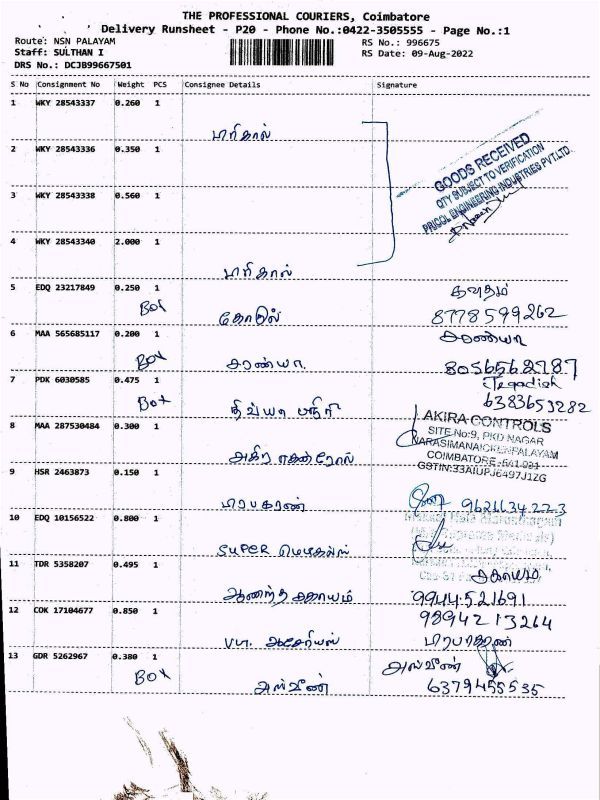 THE PROFESSIONAL COURIERS, Coimbatore
Delivery Runsheet - P20 - Phone No.:0422-3505555 - Page No.:1
Route: NSN PALAYAM
RS No.: 996675
Staff: SULTHAN I
RS Date: 09-Aug-2022
DRS No.: DCJB99667501
S No Consignment No Weight PCS Consignee Details Signature
1 WKY 28543337 0.260 1
பிரிகால்
2 WKY 28543336 0.350 1
GOODS RECEIVED
QTY SUBJECT TO VERIFICATION
PRICOL ENGINEERING INDUSTRIES PVT.LTD.
3 WKY 28543338 0.560 1
4 WKY 28543340 2.000 1
பிரிகால்
5 EDQ 23217849 0.250 1
Box
8778599262
6 MAA 565685117 0.200 1
சரண்யா
Box சரண்யா. 8056562787
7 PDK 6030585 0.475 1
Jegadish
Box 6383653282
8 MAA 287530484 0.300 1
AKIRA CONTROLS
SITE No:9, PKD NAGAR
NARASIMANAICKENPALAYAM
COIMBATORE-641 031
GSTIN:33AIUPJ6497J1ZG
9 HSR 2463873 0.150 1
பிரபகரண்
10 EDQ 10156522 0.800 1
SUPER
11 TDR 5358207 0.495 1
ஆனந்த சகாயம் 9944521691
12 COK 17104677 0.850 1
9894213264
பிரபாகரண்
13 GDR 5262967 0.380 1
அஸ்வீண்
Box அஸ்வீண் 6379455535